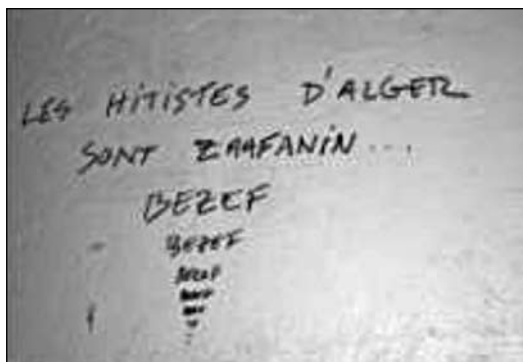 LES HITISTES D'ALGER
SONT ZAAFANIN...
BEZEF
BEZEF
BEZEF